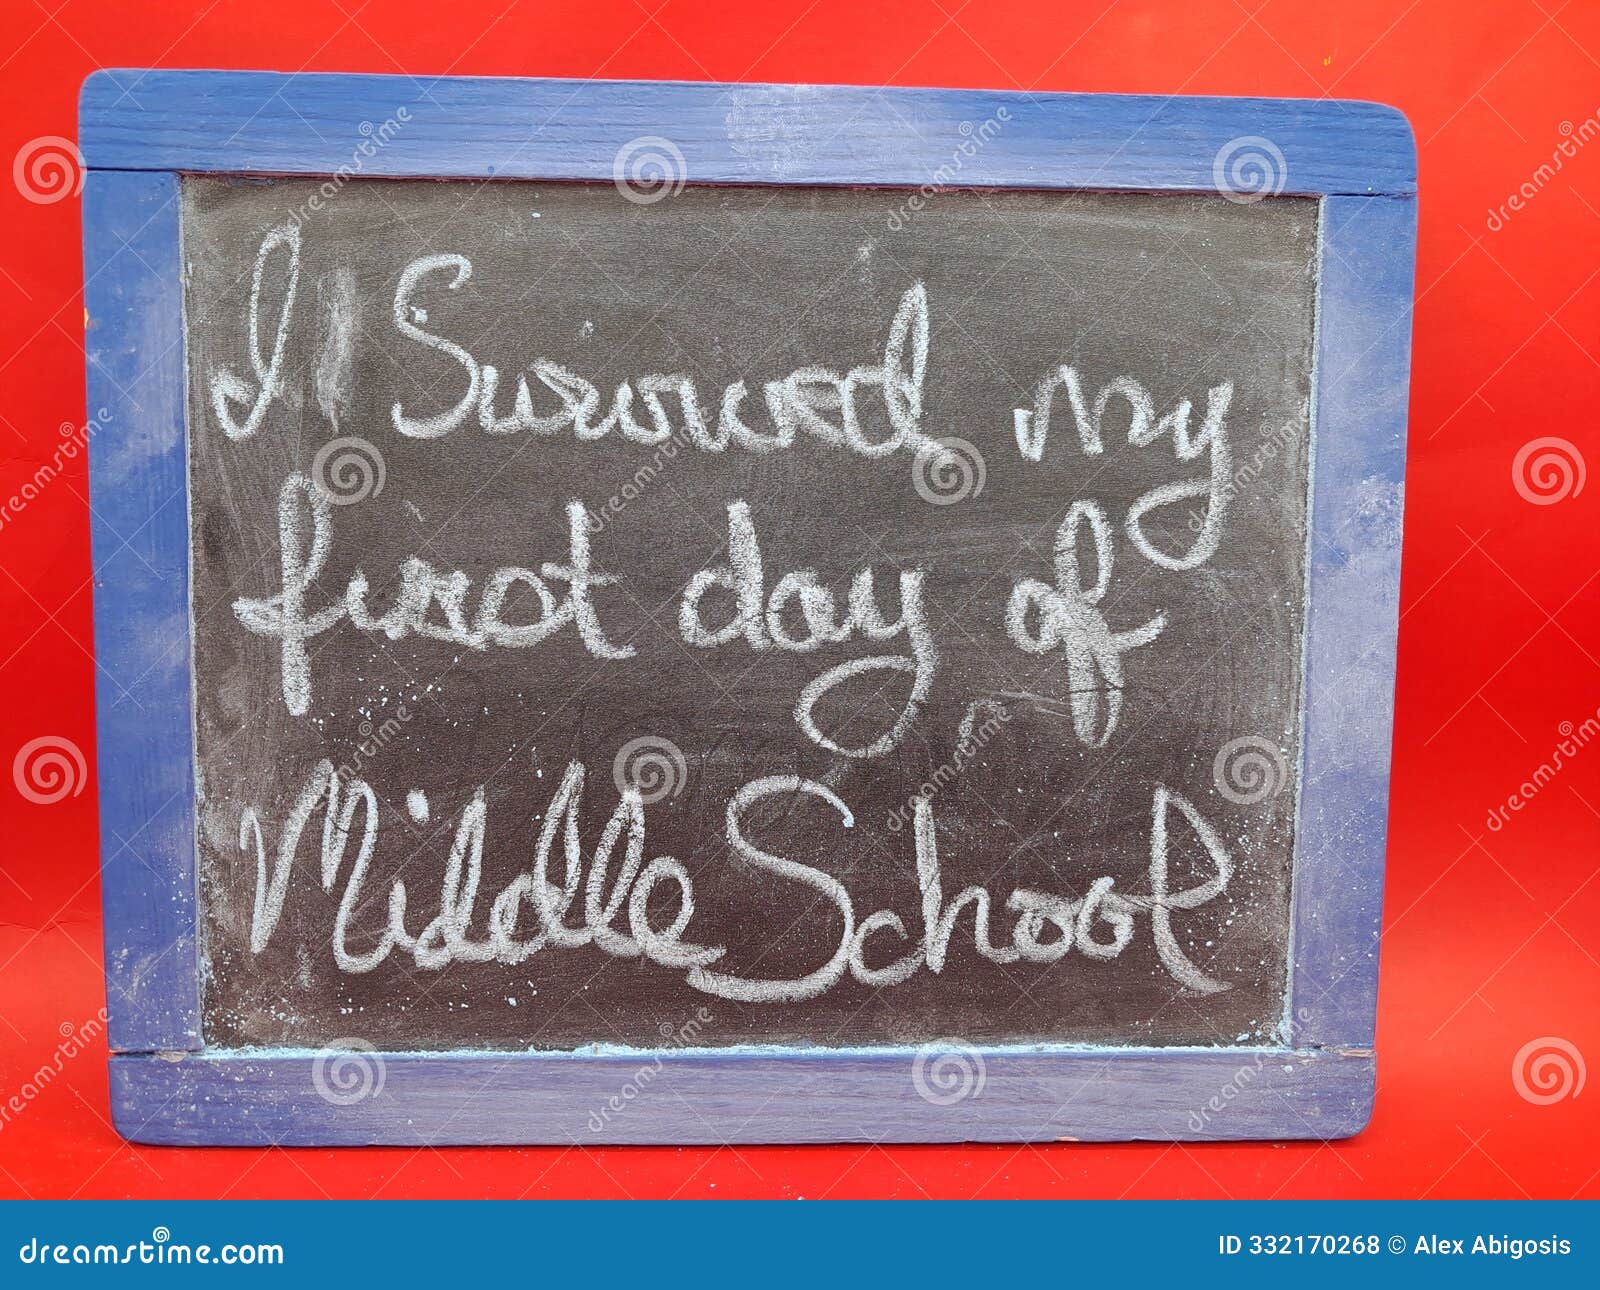 I Survived my
first day of
Middle School
dreamstime.com
ID 332170268 © Alex Abigosis